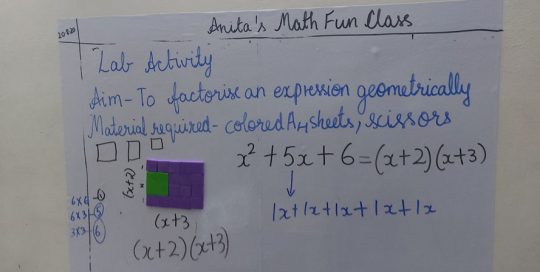 Anita's Math Fun Class
Lab Activity
Aim- To factorise an expression geometrically
Material required- colored A4 sheets, scissors
x² + 5x + 6 = (x+2)(x+3)
1x+1x+1x+1x+1x
(x+2)
(x+3
(x+2)(x+3)
6x6
6x3 - 5
3x3 - 6